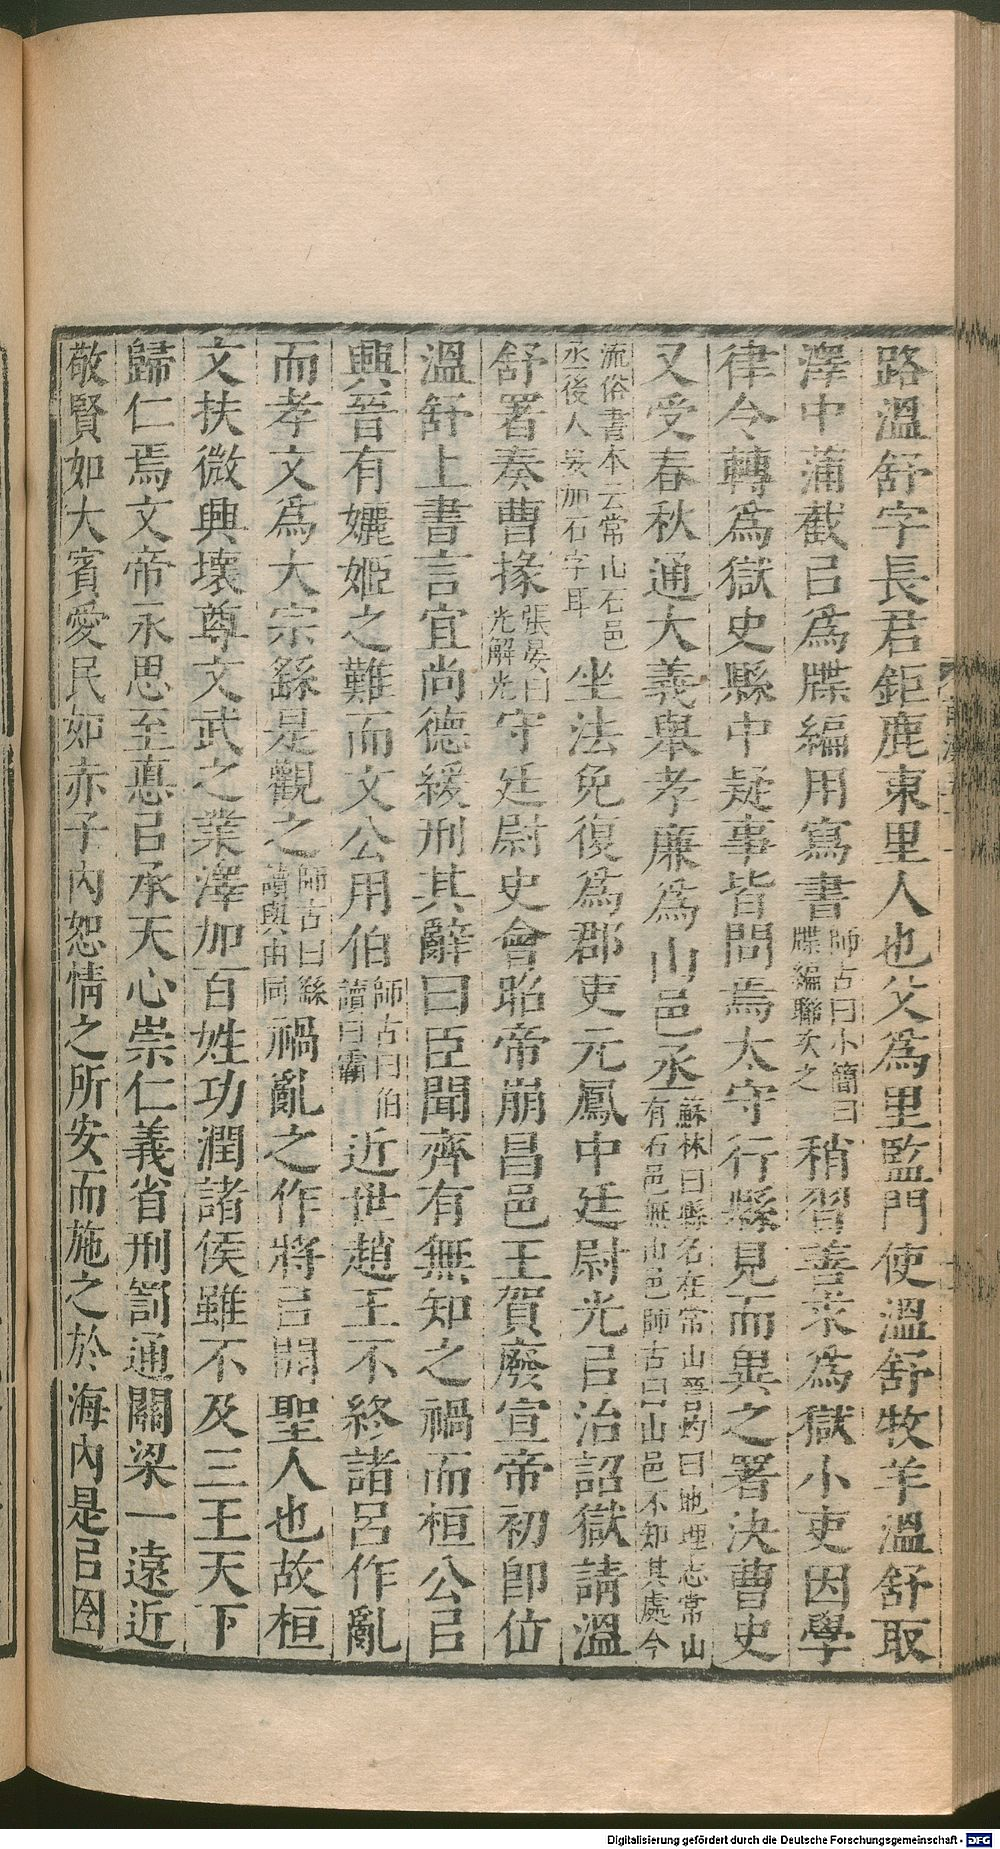 路溫舒字長君鉅鹿東里人也父爲里監門使溫舒牧羊溫舒取
澤中蒲截㠯爲牒編用寫書師古曰小簡曰牒編聯次之稍習善求爲獄小吏因學
律令轉爲獄史縣中疑事皆問焉太守行縣見而異之署決曹史
又受春秋通大義舉孝廉爲山邑丞蘇林曰縣名在常山晉灼曰地理志常山有石邑無山邑師古曰山邑不知其處今
流俗書本云常山石邑丞後人妄加石字耳坐法免復爲郡吏元鳳中廷尉光㠯治詔獄請溫
舒署奏曹掾張晏曰光解光守廷尉史會昭帝崩昌邑王賀廢宣帝初卽位
溫舒上書言宜尚德緩刑其辭曰臣聞齊有無知之禍而桓公㠯
興晉有孋姬之難而文公用伯師古曰伯讀曰霸近世趙王不終諸呂作亂
而孝文爲大宗繇是觀之師古曰繇讀與由同禍亂之作將㠯開聖人也故桓
文扶微興壞尊文武之業澤加百姓功潤諸侯雖不及三王天下
歸仁焉文帝永思至悳㠯承天心崇仁義省刑罰通關梁一遠近
敬賢如大賓愛民如赤子內恕情之所安而施之於海內是㠯囹
Digitalisierung gefördert durch die Deutsche Forschungsgemeinschaft - DFG